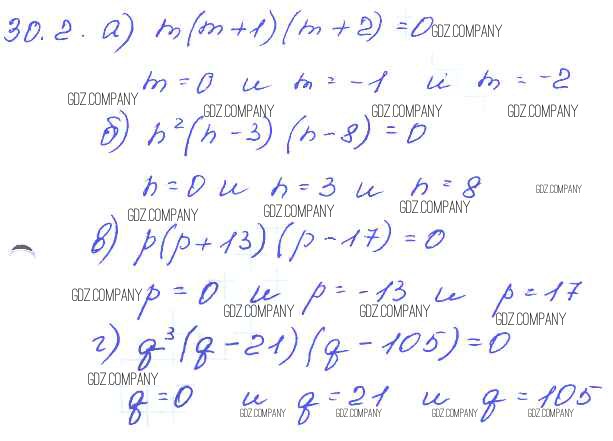 30.2. а) m(m+1)(m+2)=0 GDZ.COMPANY
m=0 и m=-1 и m=-2
GDZ.COMPANY GDZ.COMPANY GDZ.COMPANY GDZ.COMPANY
б) n²(n-3)(n-8)=0
n=0 и n=3 и n=8 GDZ.COMPANY
GDZ.COMPANY GDZ.COMPANY GDZ.COMPANY
в) p(p+13)(p-17)=0
GDZ.COMPANY p=0 и p=-13 и p=17
GDZ.COMPANY GDZ.COMPANY GDZ.COMPANY
г) q³(q-21)(q-105)=0
GDZ.COMPANY
q=0 и q=21 и q=105
GDZ.COMPANY GDZ.COMPANY GDZ.COMPANY GDZ.COMPANY